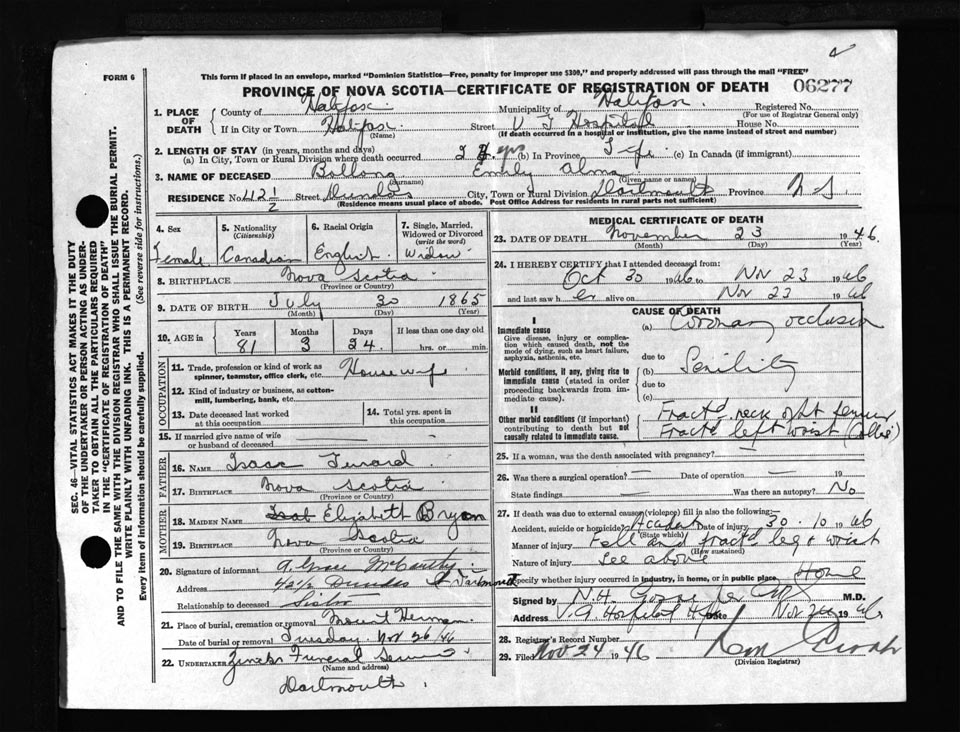 FORM 6
This form if placed in an envelope, marked "Dominion Statistics—Free, penalty for improper use $300," and properly addressed will pass through the mail "FREE"
PROVINCE OF NOVA SCOTIA—CERTIFICATE OF REGISTRATION OF DEATH 06277
SEC. 46—VITAL STATISTICS ACT MAKES IT THE DUTY
OF THE UNDERTAKER OR PERSON ACTING AS UNDER-
TAKER TO OBTAIN ALL THE PARTICULARS REQUIRED
IN THE "CERTIFICATE OF REGISTRATION OF DEATH"
AND TO FILE THE SAME WITH THE DIVISION REGISTRAR WHO SHALL ISSUE THE BURIAL PERMIT.
WRITE PLAINLY WITH UNFADING INK. THIS IS A PERMANENT RECORD.
Every item of information should be carefully supplied. (See reverse side for instructions.)
1. PLACE OF DEATH
County of Halifax Municipality of Halifax Registered No.
(For use of Registrar General only)
If in City or Town Halifax Street V G Hospital House No.
(Name) (If death occurred in a hospital or institution, give the name instead of street and number)
2. LENGTH OF STAY (in years, months and days)
(a) In City, Town or Rural Division where death occurred yrs (b) In Province Life (c) In Canada (if immigrant)
3. NAME OF DECEASED Bollong Emily Alma
(Surname) (Given name or names)
RESIDENCE No. 42 1/2 Street Dundas City, Town or Rural Division Dartmouth Province N S
(Residence means usual place of abode. Post Office Address for residents in rural parts not sufficient)
4. Sex
Female
5. Nationality
(Citizenship)
Canadian
6. Racial Origin
English
7. Single, Married, Widowed or Divorced
(write the word)
Widow
8. BIRTHPLACE Nova Scotia
(Province or Country)
9. DATE OF BIRTH July 30 1865
(Month) (Day) (Year)
10. AGE in
Years Months Days If less than one day old
81 3 24 hrs. or min.
OCCUPATION
11. Trade, profession or kind of work as
spinner, teamster, office clerk, etc. Housewife
12. Kind of industry or business, as cotton-
mill, lumbering, bank, etc.
13. Date deceased last worked
at this occupation
14. Total yrs. spent in
this occupation
15. If married give name of wife
or husband of deceased
FATHER
16. NAME Isaac
17. BIRTHPLACE Nova Scotia
(Province or Country)
MOTHER
18. MAIDEN NAME Elizabeth Bryan
19. BIRTHPLACE Nova Scotia
(Province or Country)
20. Signature of informant A. Grace McCarthy
Address 42 1/2 Dundas St Dartmouth
Relationship to deceased Sister
21. Place of burial, cremation or removal Mount Hermon
Date of burial or removal Tuesday Nov 26/46
22. UNDERTAKER Funeral Service
(Name and address)
Dartmouth
MEDICAL CERTIFICATE OF DEATH
23. DATE OF DEATH November 23 1946
(Month) (Day) (Year)
24. I HEREBY CERTIFY that I attended deceased from:
Oct 30 1946 to Nov 23 1946
and last saw h er alive on Nov 23 1946
CAUSE OF DEATH
I
Immediate cause
Give disease, injury or complica-
tion which caused death, not the
mode of dying, such as heart failure,
asphyxia, asthenia, etc.
(a) Coronary occlusion
due to
Morbid conditions, if any, giving rise to
immediate cause (stated in order
proceeding backwards from im-
mediate cause).
(b) Senility
due to
(c)
II
Other morbid conditions (if important)
contributing to death but not
causally related to immediate cause.
Fract'd neck of rt femur
Fract'd left wrist (Colles)
25. If a woman, was the death associated with pregnancy?
26. Was there a surgical operation? — Date of operation — 19
State findings Was there an autopsy? No
27. If death was due to external causes (violence) fill in also the following:
Accident, suicide or homicide? Accident Date of injury 30 · 10 1946
(State which)
Manner of injury Fell and fract'd leg & wrist
(How sustained)
Nature of injury See above
Specify whether injury occurred in industry, in home, or in public place, Home
Signed by N.H. M.D.
Address V.G. Hospital Hfx Date Nov 24 1946
28. Registrar's Record Number
29. Filed Nov 24 1946
(Division Registrar)